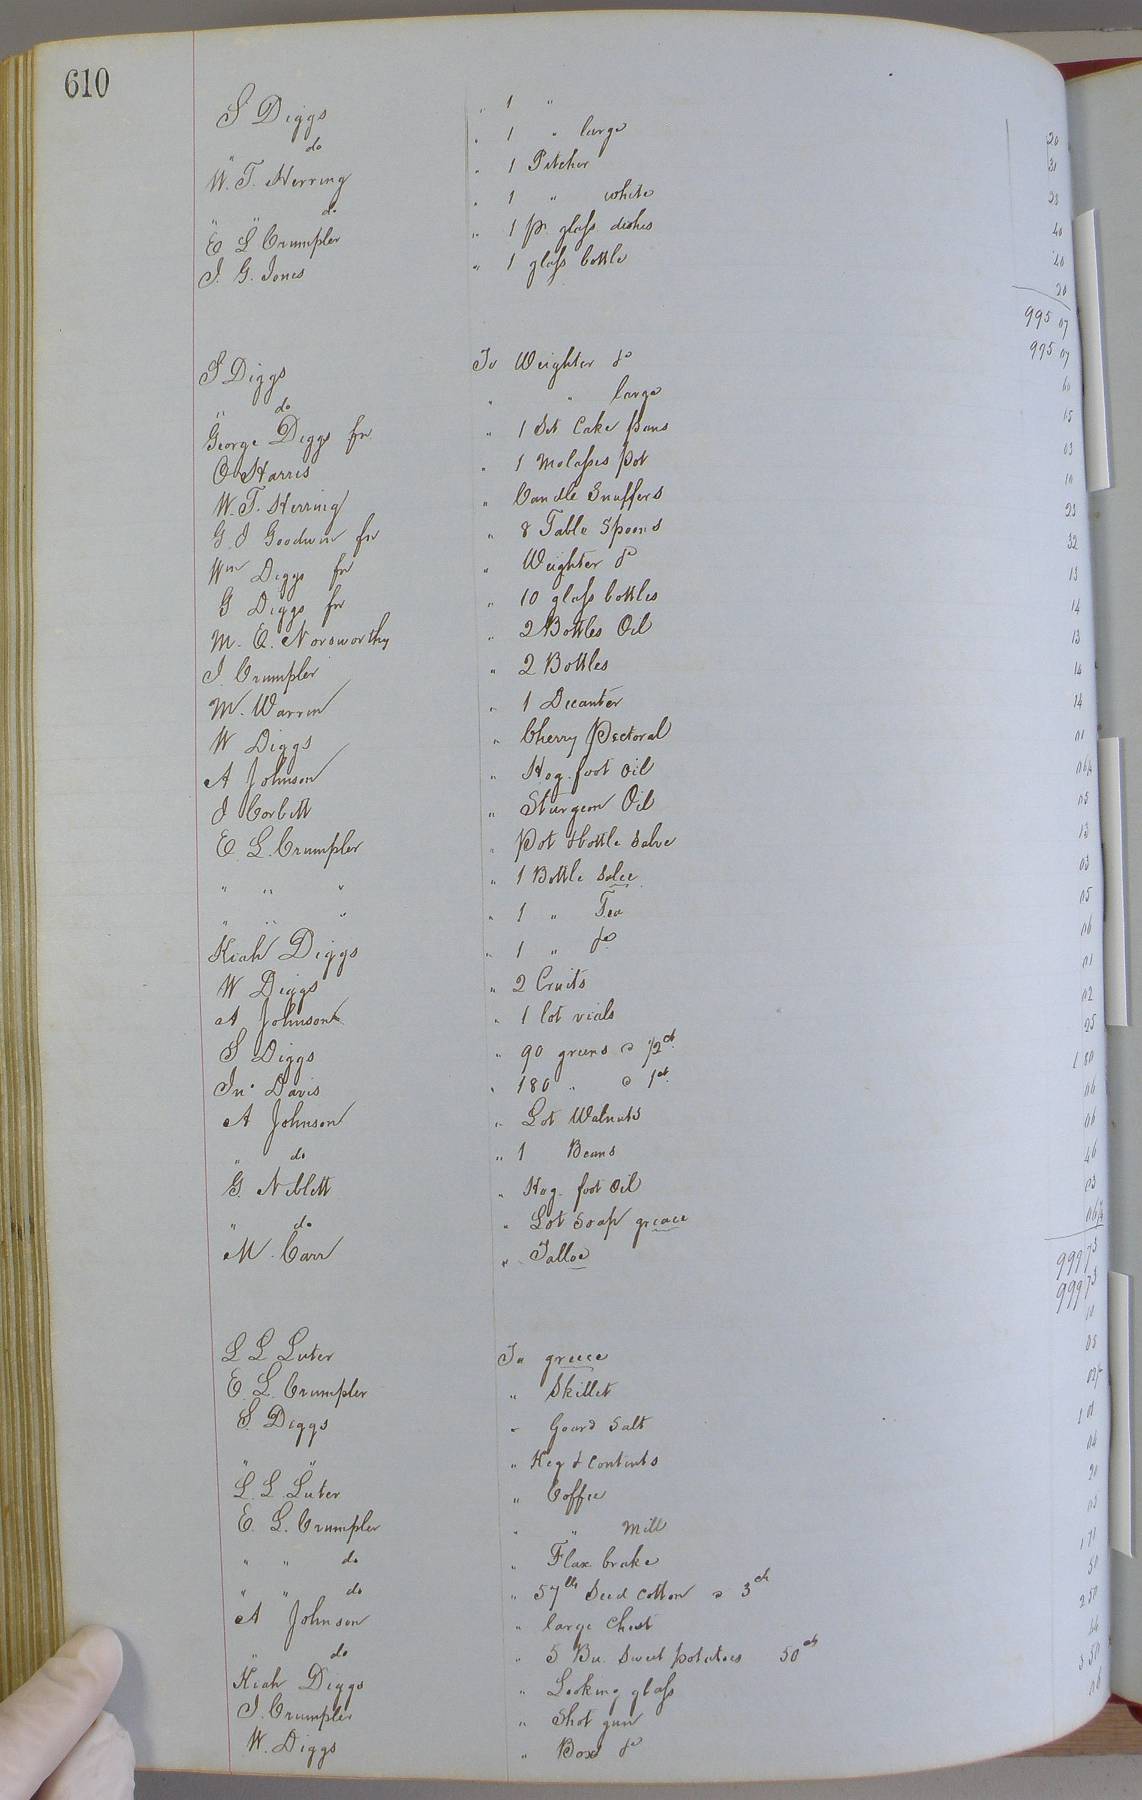 610
S Diggs " 1 " 20
" do " 1 " large 30
W. T. Herring " 1 Pitcher 25
" " do " 1 " white 40
E L Crumpler " 1 pr glass dishes 40
J. G. Jones " 1 glass bottle 20
995 07
995 07
S Diggs To Weighter &c 60
" do " " large 15
George Diggs for " 1 Set Cake pans 03
O Harris " 1 Molasses Pot 10
W. T. Herring " Candle Snuffers 25
G. J Goodwin for " 8 Table Spoons 32
Wm Diggs for " Weighter &c 13
G Diggs for " 10 glass bottles 14
M. E. Norsworthy " 2 Bottles Oil 13
J. Crumpler " 2 Bottles 14
M. Warren " 1 Decanter 14
W Diggs " Cherry Pectoral 01
A Johnson " Hog foot oil 06¼
J Corbitt " Sturgeon Oil 05
E. L. Crumpler " Pot & bottle Salve 13
" " " " 1 Bottle Salee 03
" " " " 1 " Tea 05
Kiah Diggs " 1 " &c 06
W Diggs " 2 Cruits 01
A Johnson " 1 lot vials 02
S Diggs " 90 greens @ ½ ct 25
Jno Davis " 180 " @ 1 ct 1 80
A Johnson " Lot Walnuts 06
" do " 1 Beans 06
G. Niblett " Hog foot Oil 46
" do " Lot Soap greace 03
M. Carr " Talloe 06¼
999 73
999 73
L L Luter To greece 10
E. L. Crumpler " Skillet 05
S. Diggs " Gourd Salt 02
" " " Keg & contents 1 01
L. L. Luter " Coffee 04
E. L. Crumpler " " Mill 20
" " do " Flax brake 05
" " do " 57 lbs Seed Cotton @ 3 cts 1 71
A Johnson " large Chest 50
" do " 5 Bu. Sweet potatoes 50 cts 2 50
Kiah Diggs " Looking glass
J. Crumpler " Shot gun 5 50
W. Diggs " Box &c 06